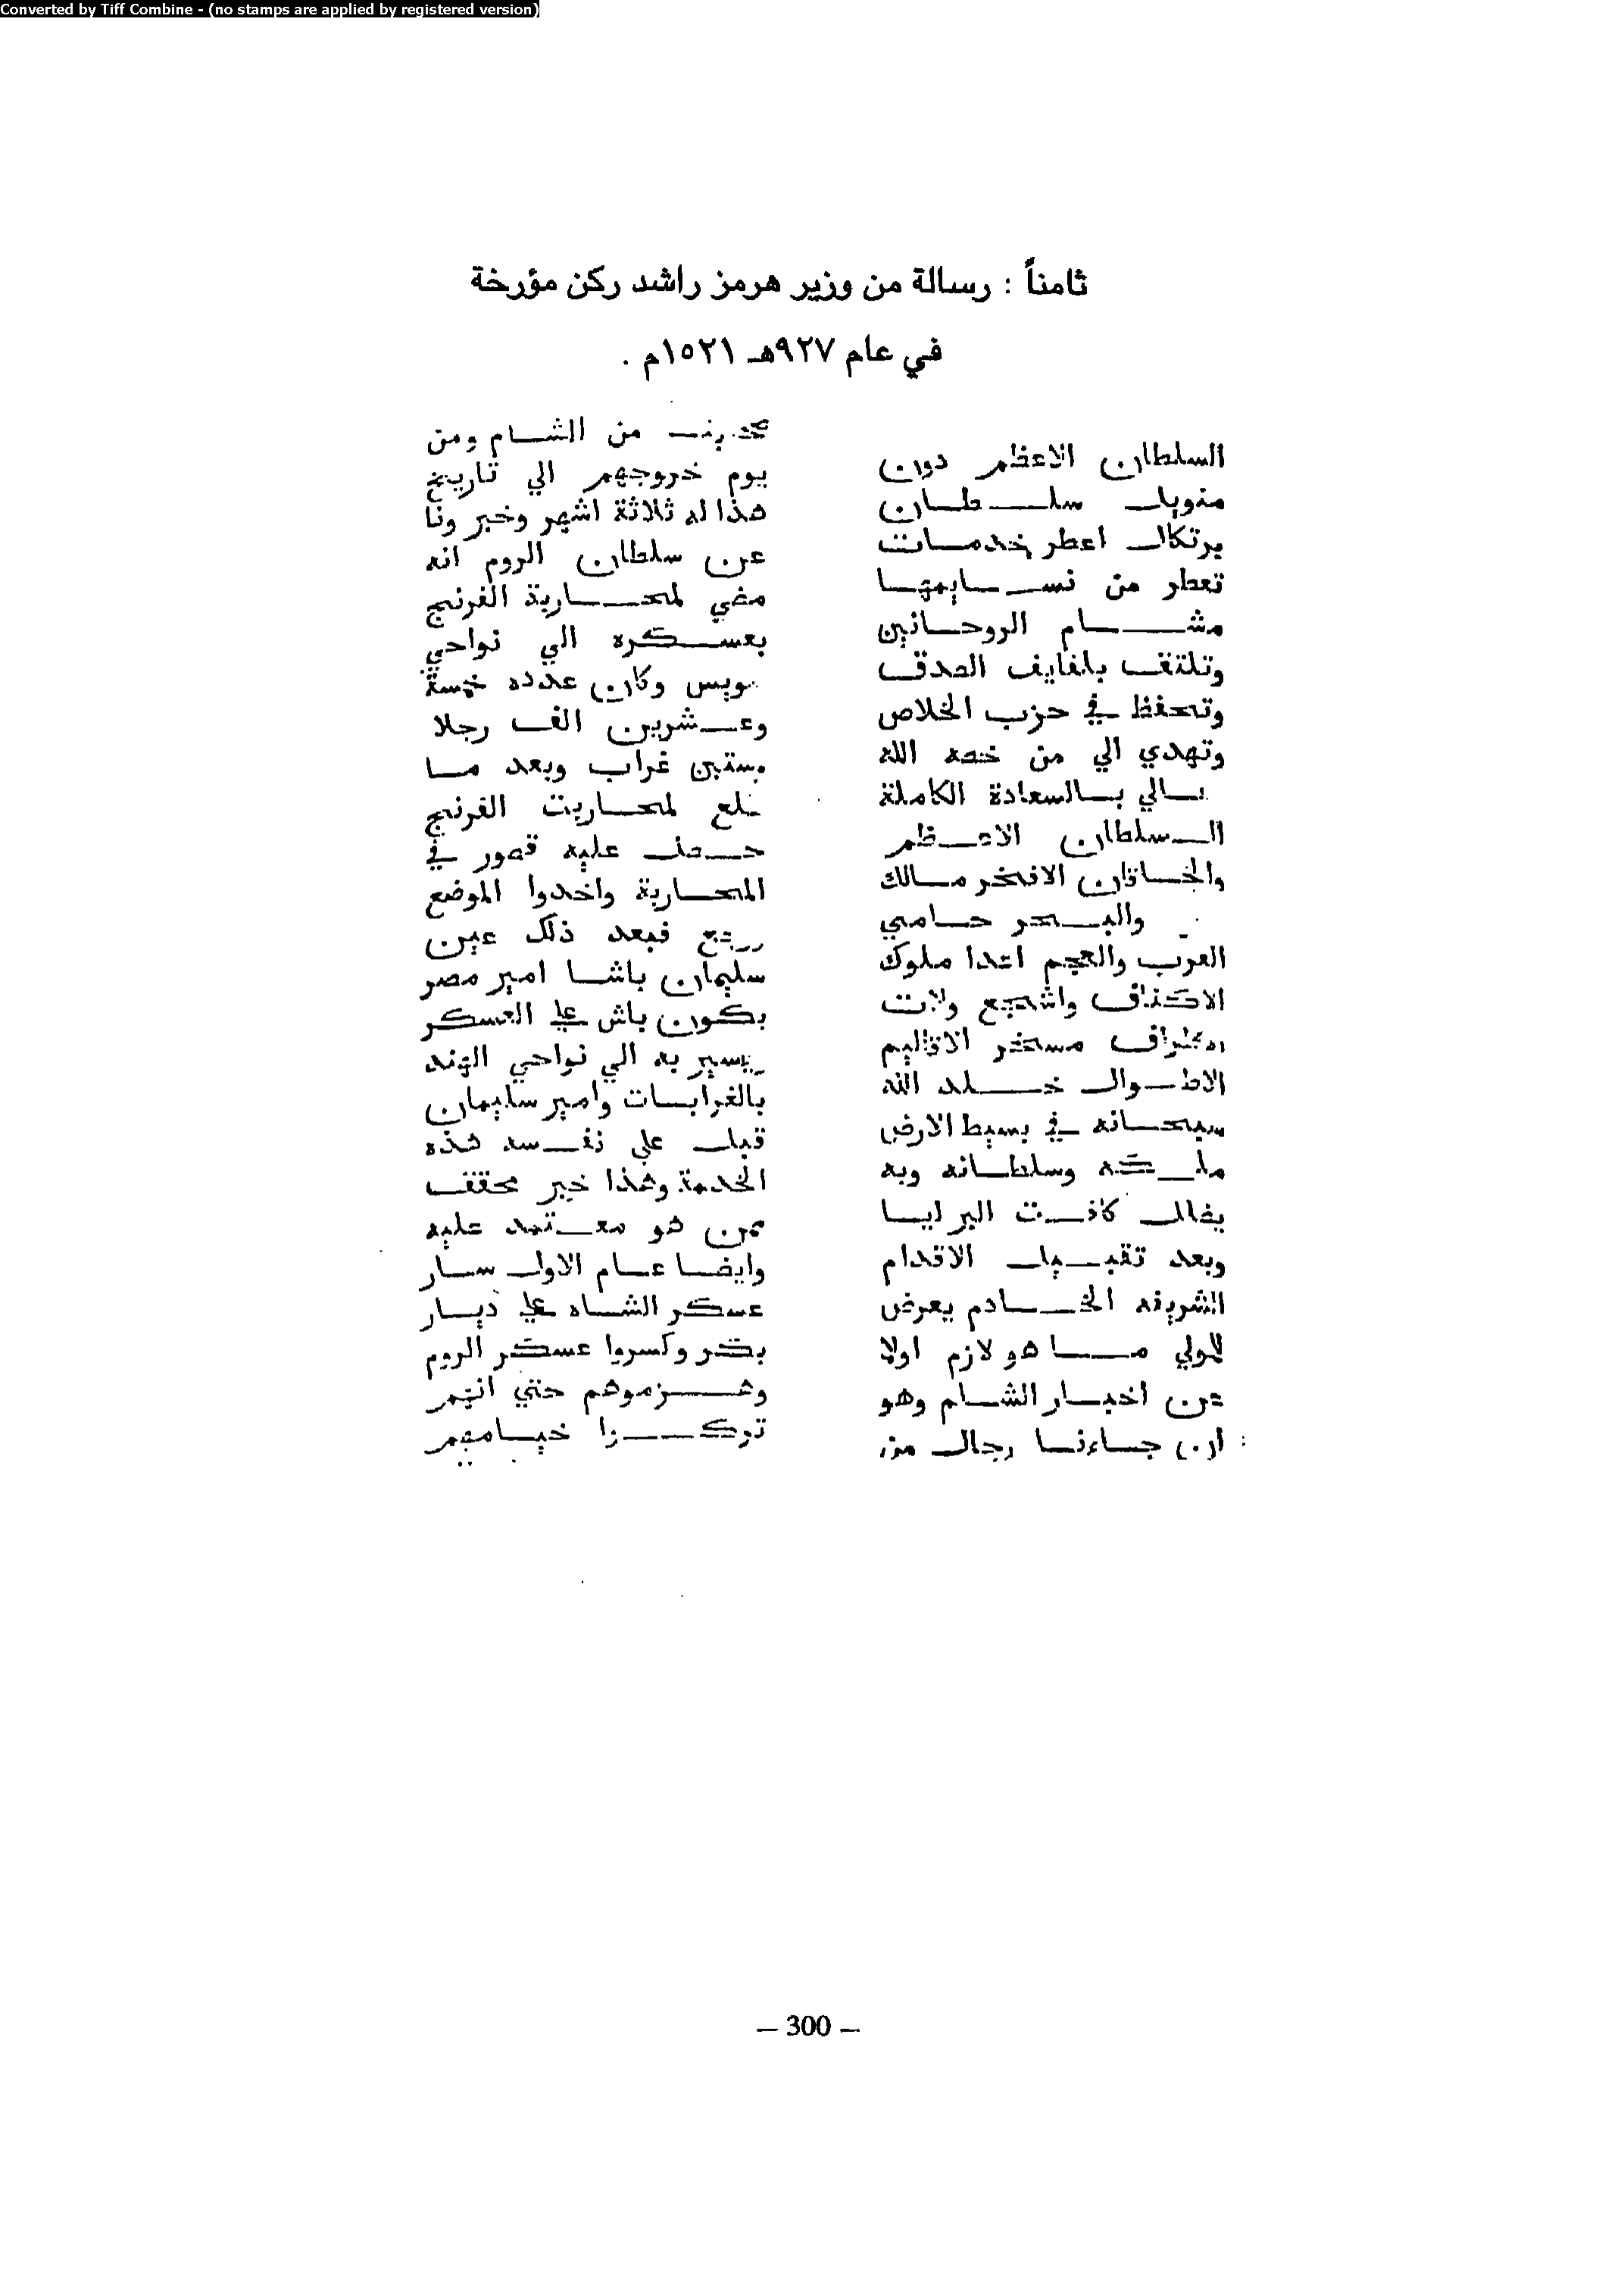 Converted by Tiff Combine - (no stamps are applied by registered version)
ثامناً : رسالة من وزير هرمز راشد ركن مؤرخة
في عام ٩٢٧هـ ١٥٢١م .
السلطان الاعظم دون
منويل سلطان
برتكال اعطر خدمات
تعطر من نسايمها
مشام الروحانين
وتلتقف بلفايف الصدق
وتحفظ في حزب الخلاص
وتهدي الي من خصه الله
بالسعادة الكاملة
السلطان الاعظم
والخاقان الافخر مالك
والبحر حامي
العرب والعجم اعدا ملوك
الاكناف واشجع ولات
مسخر الاقاليم
الاطوال خلد الله
سبحانه في بسيط الارض
ملكه وسلطانه وبه
كافت البرايا
وبعد تقبيل الاقدام
الشريفه الخادم يعرض
للمولي ما هو لازم اولا
عن اخبار الشام وهو
ان جاءنا رجال من
من الشام ومن
يوم خروجهم الي تاريخ
هذا له ثلاثة اشهر وخبر ونا
عن سلطان الروم انه
مضي لمحاربة الفرنج
بعسكره الي نواحي
وكان عدده خمسة
وعشرين الف رجلا
بستين غراب وبعد ما
طلع لمحاربت الفرنج
حصل عليه قصور في
المحاربة واخدوا الموضع
فبعد ذلك عين
سليمان باشا امير مصر
يكون باش علي العسكر
يسير به الي نواحي الهند
بالغرابات وامير سليمان
قبل علي نفسه هذه
الخدمة وهذا خبر محقق
ممن هو معتمد عليه
وايضا عام الاول سار
عسكر الشاه علي ديار
بكر وكسروا عسكر الروم
وهزموهم حتي انهم
تركوا خيامهم
– 300 –